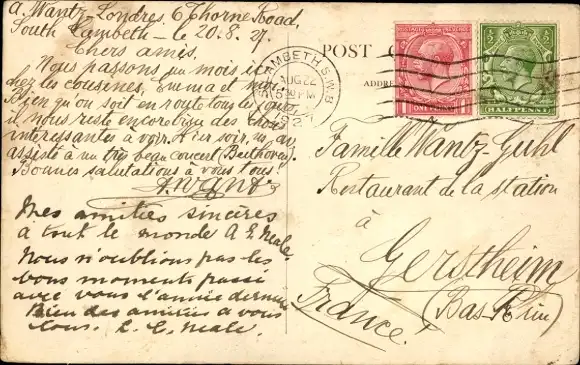 A. Wantz-Londres. 6 Thorne Road,
South Lambeth - le 20.8.27.
Chers amis.
Nous passons un mois ici
chez les cousines, Emma et moi.
Bien qu'on soit en route tous les jours
il nous reste encore bien des choses
intéressantes à voir. Hier soir, ns. av.
assisté à un très beau concert (Beethoven).
Bonnes salutations à vous tous!
A. Wantz
Mes amitiés sincères
à tout le monde A E Neale
Nous n'oublions pas les
bons moments passé
avec vous l'année dernière
Bien des amitiés à vous
tous. E. E. Neale.
POST C
ADDRE
LAMBETH S.W.8
AUG 22
PM
192
HALFPENNY
Famille Wantz-Guhl
Restaurant de la station
à
Gerstheim
(Bas-Rhin)
France!